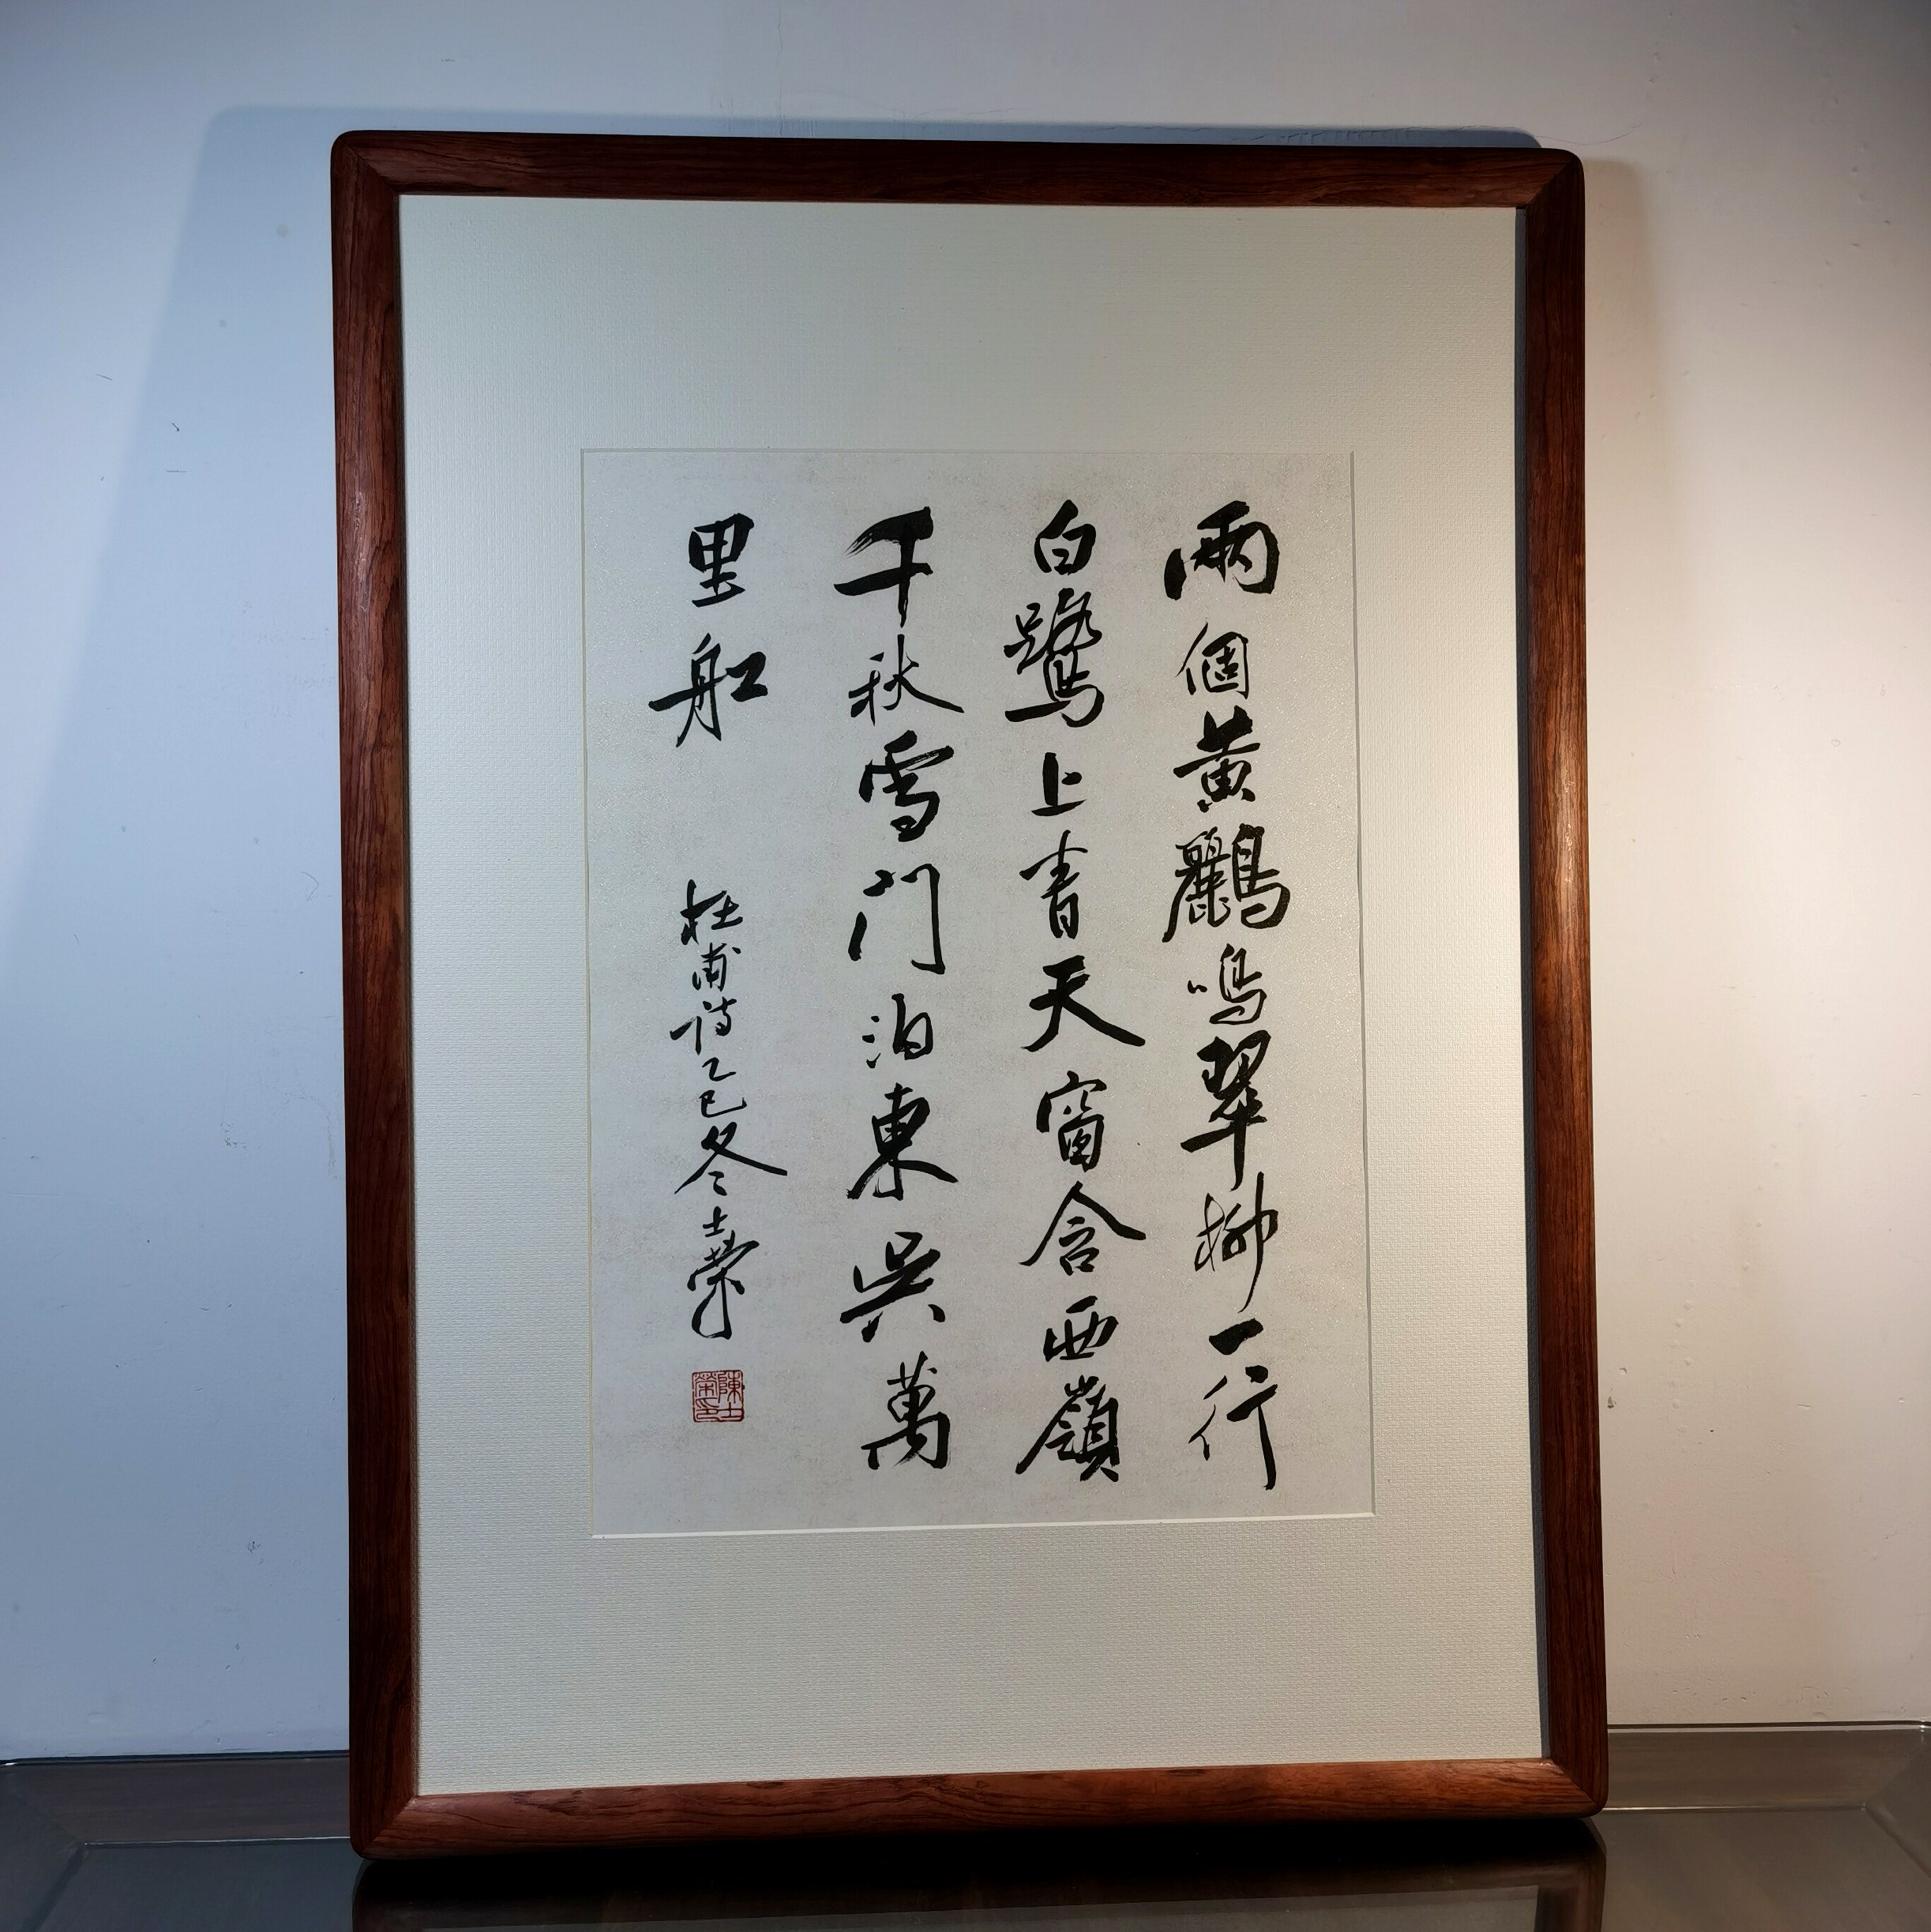 兩個黃鸝鳴翠柳一行
白鷺上青天窗含西嶺
千秋雪门泊東吳萬
里船
杜甫诗乙巳冬士荣
陳士榮印